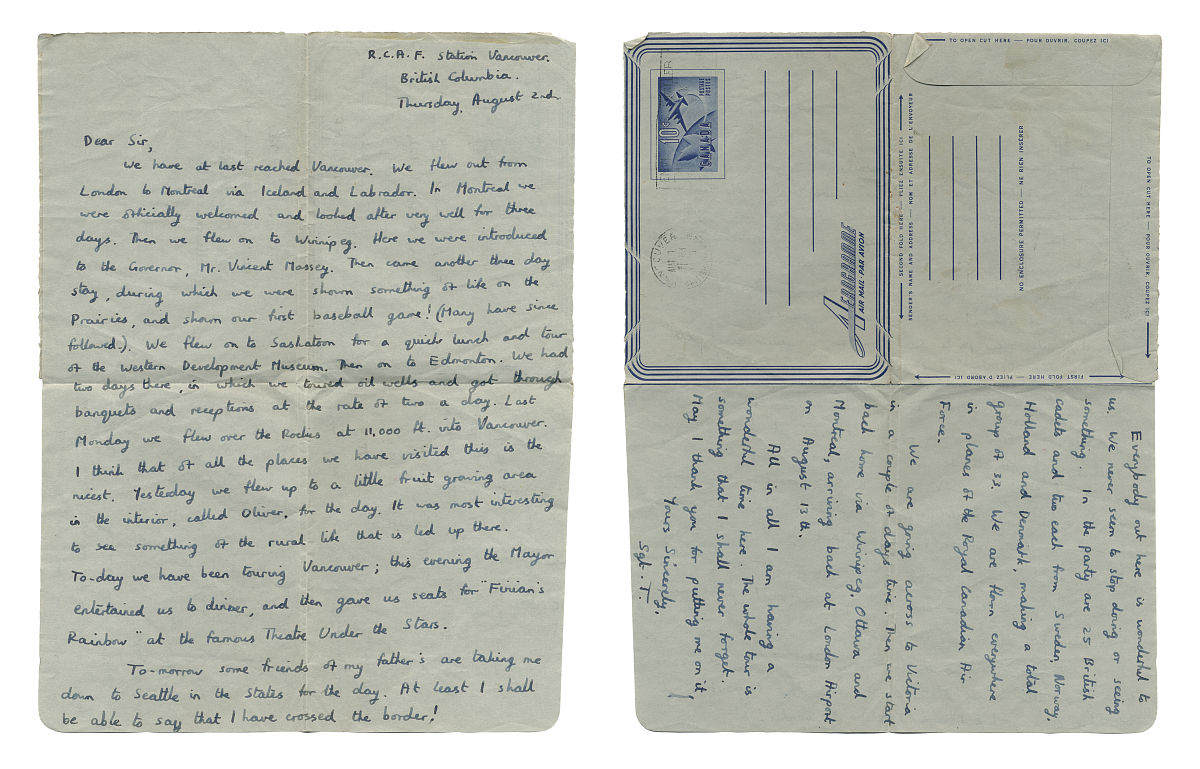 R.C.A.F. Station Vancouver.
British Columbia.
Thursday, August 2nd.
Dear Sir,
We have at last reached Vancouver. We flew out from
London to Montreal via Iceland and Labrador. In Montreal we
were officially welcomed and looked after very well for three
days. Then we flew on to Winnipeg. Here we were introduced
to the Governor, Mr. Vincent Massey. Then came another three day
stay, during which we were shown something of life on the
Prairies, and shown our first baseball game! (Many have since
followed.). We flew on to Saskatoon for a quick lunch and tour
of the Western Development Museum. Then on to Edmonton. We had
two days there, in which we toured oil wells and got through
banquets and receptions at the rate of two a day. Last
Monday we flew over the Rockies at 11,000 ft. into Vancouver.
I think that of all the places we have visited this is the
nicest. Yesterday we flew up to a little fruit growing area
in the interior, called Oliver, for the day. It was most interesting
to see something of the rural life that is led up there.
To-day we have been touring Vancouver; this evening the Mayor
entertained us to dinner, and then gave us seats for "Finian's
Rainbow" at the famous Theatre Under the Stars.
To-morrow some friends of my father's are taking me
down to Seattle in the States for the day. At least I shall
be able to say that I have crossed the border!
POSTAGE POSTES
10¢
CANADA
VANCOUVER
AUG
Aerogramme
AIR MAIL PAR AVION
TO OPEN CUT HERE — POUR OUVRIR, COUPEZ ICI
SECOND FOLD HERE — PLIEZ ENSUITE ICI
SENDER'S NAME AND ADDRESS — NOM ET ADRESSE DE L'ENVOYEUR
NO ENCLOSURE PERMITTED — NE RIEN INSÉRER
TO OPEN CUT HERE — POUR OUVRIR, COUPEZ ICI
FIRST FOLD HERE — PLIEZ D'ABORD ICI
Everybody out here is wonderful to
us. We never seem to stop doing or seeing
something. In the party are 25 British
cadets and two each from Sweden, Norway,
Holland and Denmark making a total
group of 33. We are flown everywhere
in planes of the Royal Canadian Air
Force.
We are going across to Victoria
in a couple of days time. Then we start
back home via Winnipeg, Ottawa and
Montreal, arriving back at London Airport
on August 13th.
All in all I am having a
wonderful time here. The whole tour is
something that I shall never forget.
May I thank you for putting me on it,
Yours Sincerely,
Sgt. T.